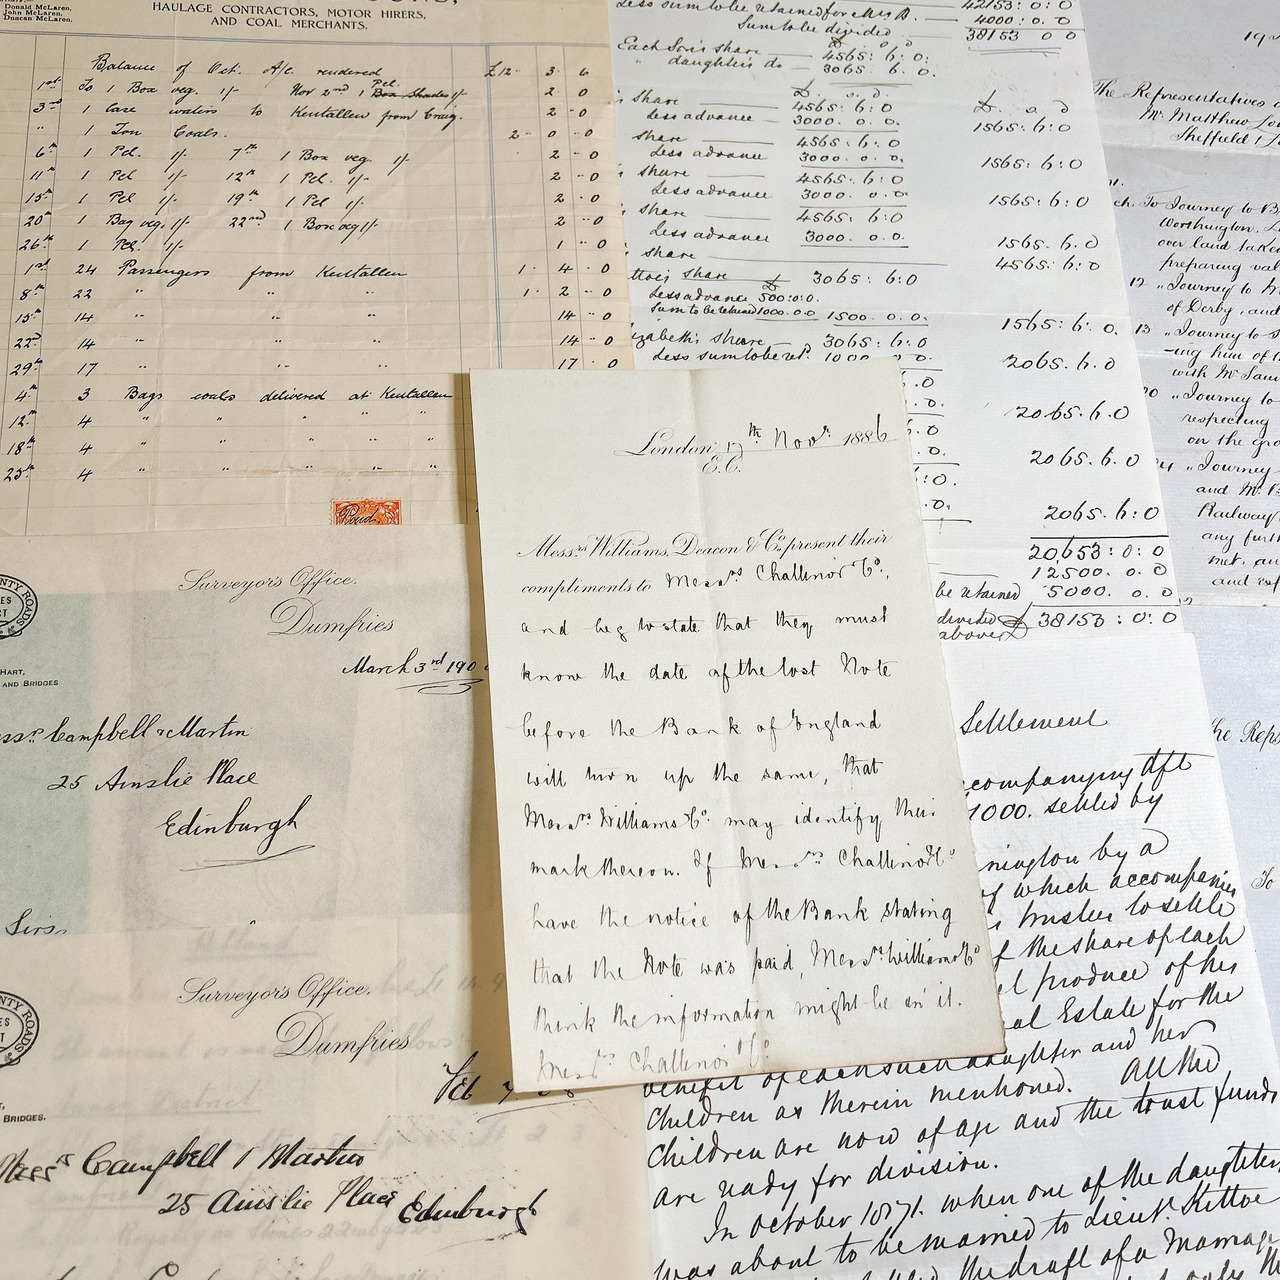 Donald McLaren.
John McLaren.
Duncan McLaren.
HAULAGE CONTRACTORS, MOTOR HIRERS,
AND COAL MERCHANTS.
Balance of Oct. A/c. rendered £12 3 6
1st To 1 Box veg. 1/- Nov 2nd 1 Pcl. Box Shades 1/- 2 0
3rd 1 Case waters to Kentallen from Craig. 2 0
" 1 Ton Coals. 2 0 0
6th 1 Pcl. 1/- 7th 1 Box veg. 1/- 2 0
11th 1 Pcl 1/- 12th 1 Pcl. 1/- 2 0
15th 1 Pcl 1/- 19th 1 Pcl 1/- 2 0
20th 1 Bag veg. 1/- 22nd 1 Box veg 1/- 2 0
26th 1 Pcl. 1/- 1 0
1st 24 Passengers from Kentallen 1 4 0
8th 22 " " " 1 2 0
15th 14 " " " 14 0
22nd 14 " " " 14 0
29th 17 " " " 17 0
4th 3 Bags coals delivered at Kentallen
12th 4 " " " " "
18th 4 " " " " "
25th 4 " " " " "
Paid
Less sum to be retained for this B. 42153 : 0 : 0
4000 : 0 : 0
Sum to be divided 38153 0 0
Each Son's share 4565 : 6 : 0
" daughter's do 3065. 6. 0.
share 4565 : 6 : 0
Less advance 3000. 0. 0. 1565 : 6 : 0
share 4565 : 6 : 0
Less advance 3000. 0. 0. 1565 : 6 : 0
share 4565. 6. 0
Less advance 3000. 0. 0. 1565 : 6 : 0
share 4565 : 6 : 0
Less advance 3000. 0. 0. 1565. 6. 0
share 4565 : 6 : 0
share £ 3065 : 6 : 0
Less advance 500 : 0 : 0.
Sum to be retained 1000. 0. 0 1500. 0. 0. 1565 : 6 : 0.
share 3065 : 6 : 0
Less sum to be ret. 1000 2065. 6. 0
2065. 6. 0
2065. 6. 0
2065. 6 : 0
20,653 : 0 : 0
12500. 0. 0
be retained 5000. 0. 0
divided
above £ 38153 : 0 : 0
The Representatives
Mr. Matthew
Sheffield
To Journey to
Worthington
over land taken
preparing
12 " Journey to
of Derby, and
13 " Journey to
-ing him of
with Mr Sam
" Journey to
respecting
on the
" Journey
and Mr
Railway
any furth
met. an
and exp
London, 17th Novr. 1886
E.C.
Messrs. Williams, Deacon & Co. present their
compliments to Messrs Challinor & Co.,
and beg to state that they must
know the date of the lost Note
before the Bank of England
will turn up the same, that
Messrs Williams & Co. may identify their
mark thereon. If Messrs Challinor & Co
have the notice of the Bank stating
that the Note was paid, Messrs Williams & Co
think the information might be on it.
Messrs Challinor & Co
Surveyor's Office.
Dumfries
March 3rd 190
HART,
AND BRIDGES.
Campbell & Martin
25 Ainslie Place
Edinburgh
Sirs,
Surveyor's Office.
Dumfries
Feb 7
BRIDGES.
Messrs Campbell & Martin
25 Ainslie Place Edinburgh
Settlement
accompanying dft
1000. settled by
nington by a
of which accompanies
trustees to settle
the share of each
produce of his
Estate for the
benefit of each such daughter and her
children as therein mentioned. All the
children are now of age and the trust funds
are ready for division.
In October 1871. when one of the daughters
was about to be married to Lieut. Kittoe
the draft of a Marriage